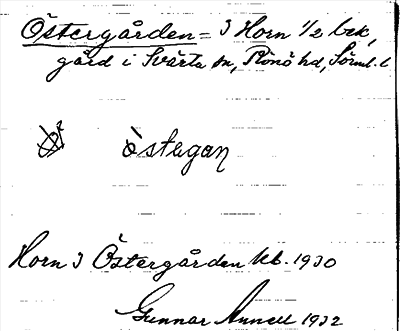 Östergården = 3 Horn 1/2 bek,
gård i Svärta sn, Rönö hd, Sörml. l
östegan
Horn 3 Östergården kb. 1930
Gunnar Annell 1932